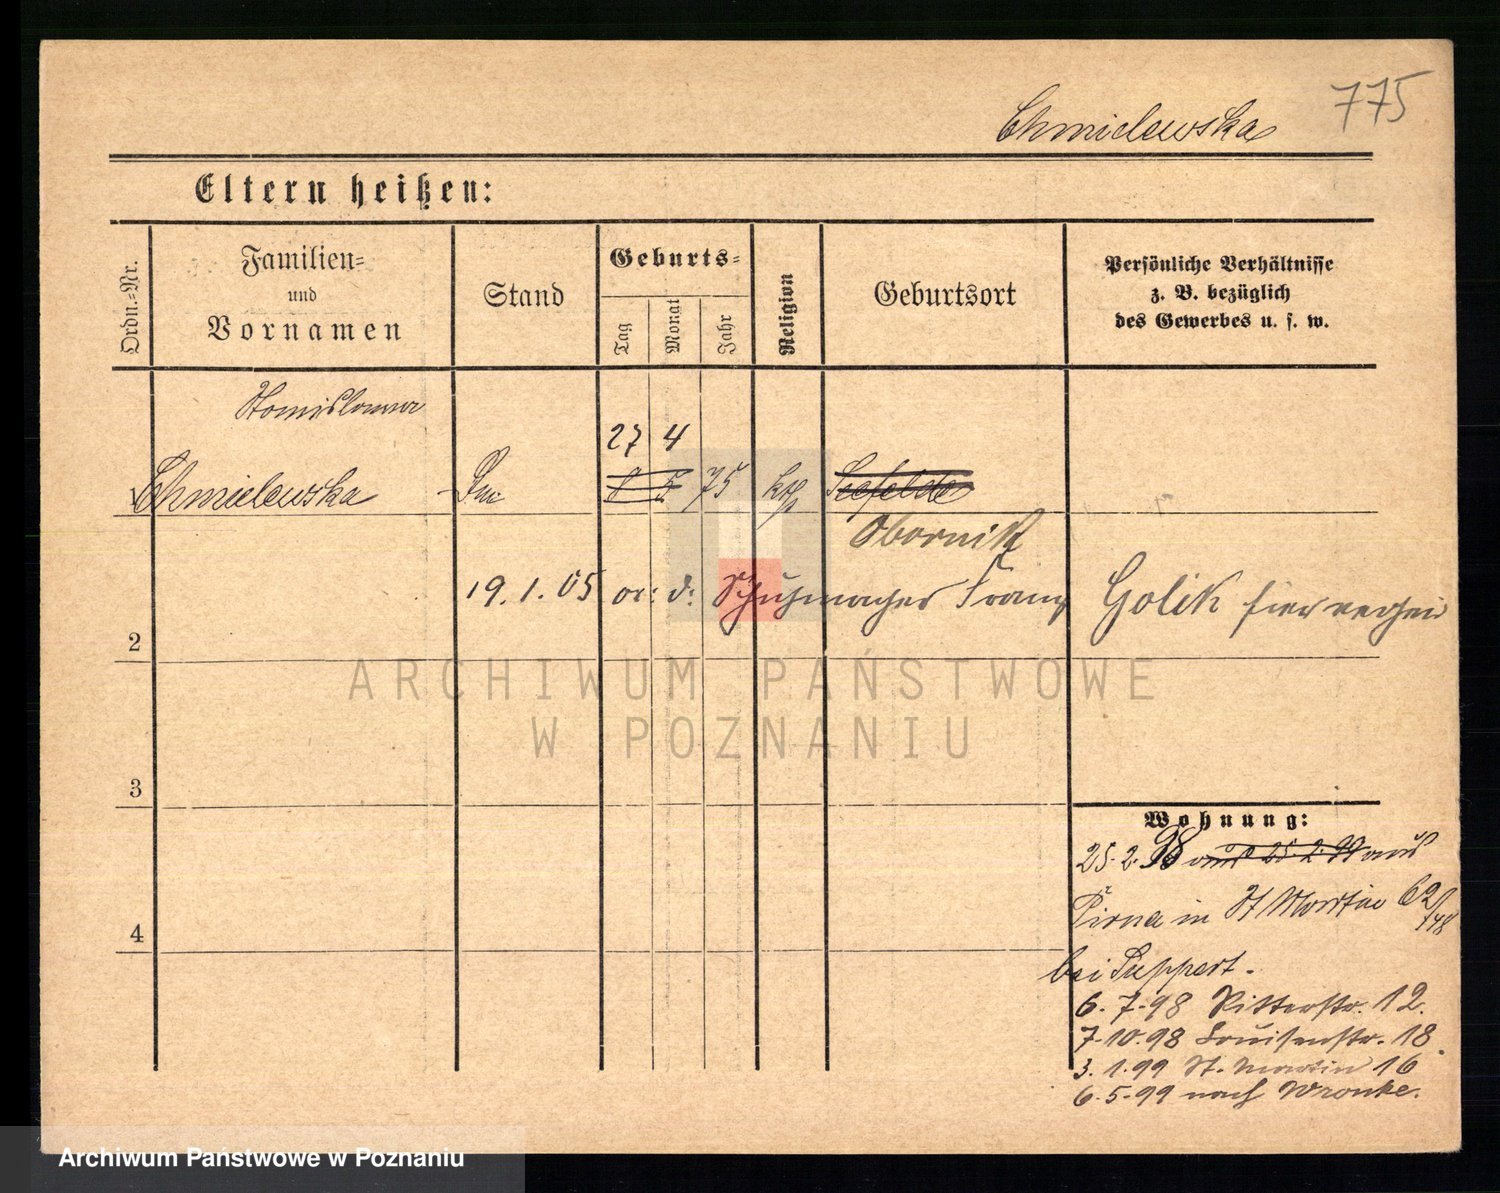 775
Chmielewska
Eltern heißen:
Ordn.-Nr.
Familien-
und
Vornamen
Stand
Geburts-
Tag
Monat
Jahr
Religion
Geburtsort
Persönliche Verhältnisse
z. B. bezüglich
des Gewerbes u. s. w.
27 4
Chmielewska
8 5 75 kth Seefelde
Obornik
2
19.1.05 or: d: Schuhmacher Franz Golik hier
ARCHIWUM PAŃSTWOWE
W POZNANIU
3
Wohnung:
25.2.98 aus 25.2.99 aus
Pirna in St Martin 62
4
bei Suppert.
6.7.98 Ritterstr. 12.
7.10.98 Louisenstr. 18.
3.1.99 St. Martin 16
6.5.99 nach Wronke.
Archiwum Państwowe w Poznaniu